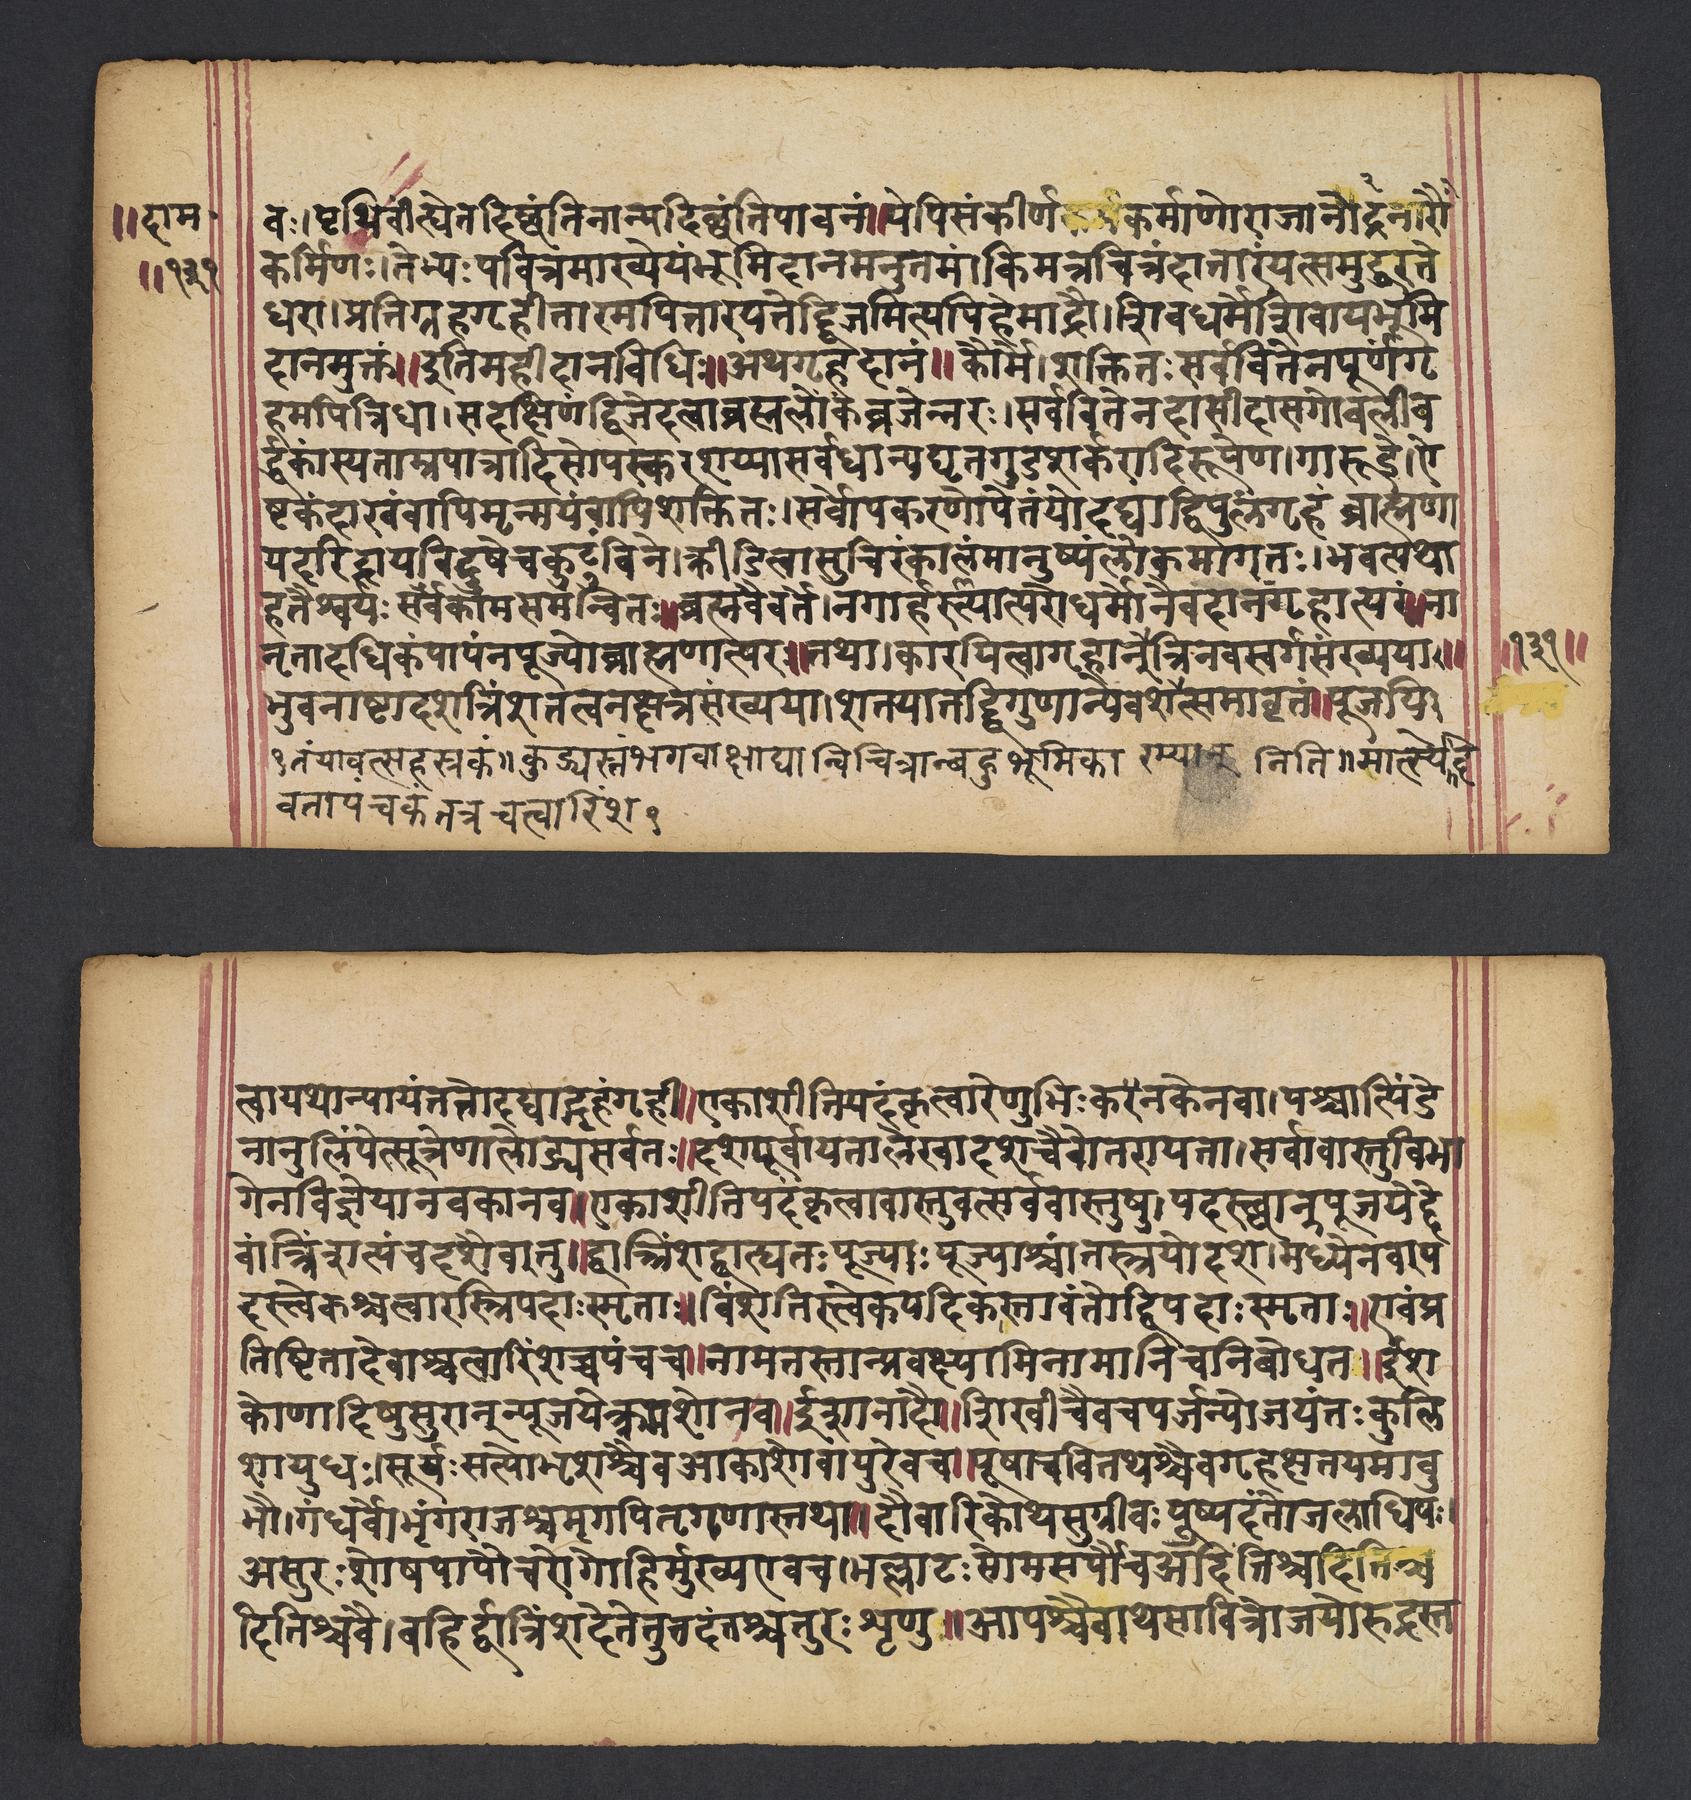 ॥दाम॰
॥१३१
वः।पृथिवीत्येतदिछंतिनान्यदिछंतिपावनं॥येपिसंकीर्णकर्माणोराजानो
कर्मिणः।तेभ्यःपवित्रमाख्येयंभूमिदानमनुत्तमं।किमत्रचित्रंदातारंयत्समुद्धरते
धरा।प्रतिग्रहगृहीतारमपितारयतेद्विजमित्यपिहेमाद्रौ।शिवधर्मेशिवायभूमि
दानमुक्तं॥इतिमहीदानविधिः॥अथगृहदानं॥कौर्मे।शक्तितःसर्ववित्तेनपूर्णंगृ
हमपित्रिधा।सदक्षिणंद्विजेदत्वाब्रह्मलोकंव्रजेन्नरः।सर्ववित्तेनदासीदासगोवलीव
र्द्दकांस्यताम्रपात्रादिसोपस्करशय्यासर्वधान्यघृतगुडशर्करादिरूपेण।गारूडे।ऐ
ष्टकंदारवंवापिमृन्मयंवापिशक्तितः।सर्वोपकरणोपेतंयोदद्याद्विपुलंगृहं ब्राह्मणा
यदरिद्रायविदुषेचकुटुंविने।क्रीडित्वासुचिरंकालंमानुष्यंलोकमागतः।भवत्यथो
हतैश्वर्यःसर्वकामसमन्वितः॥ब्रह्मवैवर्ते।नगार्हस्थ्यात्परोधर्मोनैवदानंगृहात्परं॥ना
नृतादधिकंपापंनपूज्योब्राह्मणात्परः॥तथा।कारयित्वागृहान्त्रिनवस्वर्गसंख्यया॥
॥१३१॥
भुवनाष्टादशत्रिंशत्तत्वनक्षत्रसंख्यया।शतयातद्द्विगुणान्यवेशत्समावृतं॥पूजयि
१तंयावत्सहस्त्रकं॥कुड्यस्तंभगवाक्षाद्यान्विचित्रान्बहुभूमिका निति॥मात्स्ये
वतापंचकंतत्रचत्वारिंश१
त्वायथोन्यायंततोदद्याद्गृहंगृही॥एकाशीतिपदंकृत्वारेणुभिःकनकेनवा।पश्चात्पिंडे
नानुलिंपेत्सूत्रेणालोड्यसर्वतः॥दशपूर्वायतालेखादशचैवोत्तरायता।सर्वावास्तुविभा
गेनविज्ञेयानवकानव॥एकाशीतिपदंकृत्वावास्तुवत्सर्ववास्तुषु।पदस्छानुपूजयेद्दे
वांत्रिंशत्पंचदशैवातु॥द्वात्रिंशद्वात्द्यतःपूज्याःपूज्याश्चांतस्त्रयोदश।मध्येनवाप
दस्त्वेकश्चत्वारस्त्रिपदाःस्मृताः॥विंशतिस्त्वेकपदिकस्तावंतोद्विपदाःस्मृताः॥एवंप्र
तिष्टितादेवाश्चत्वारिंशच्चपंचच॥नामतस्तान्प्रवक्ष्यामिनामानिचनिबोधत॥ईश
कोणादिषुसुरान्पूजयेत्क्रमशोनव॥ईशानादौ॥शिखीचैवचपर्जन्योजयंतःकुलि
शायुधः।सूर्यःसत्योभृशश्चैवआकाशोवायुरेवच॥पूषाचवितथश्चैवगृहक्षतयमावु
भौ।गंधर्वोभृंगराजश्चमृगपितृगणास्तथा॥दौवारिकोथसुग्रीवःपुष्पदंतोजलाधिपः।
असुरःशोषपापौचरोगोहिर्मुख्यएवच।भल्लाटःसोमसर्पौचअदितिश्चदितिश्च
दितिश्चवै।बहिर्द्वात्रिंशदेतेतुतदंतश्चतुरःश्रृणु॥आपश्चैवाथसावित्रोजयोरुद्रस्त